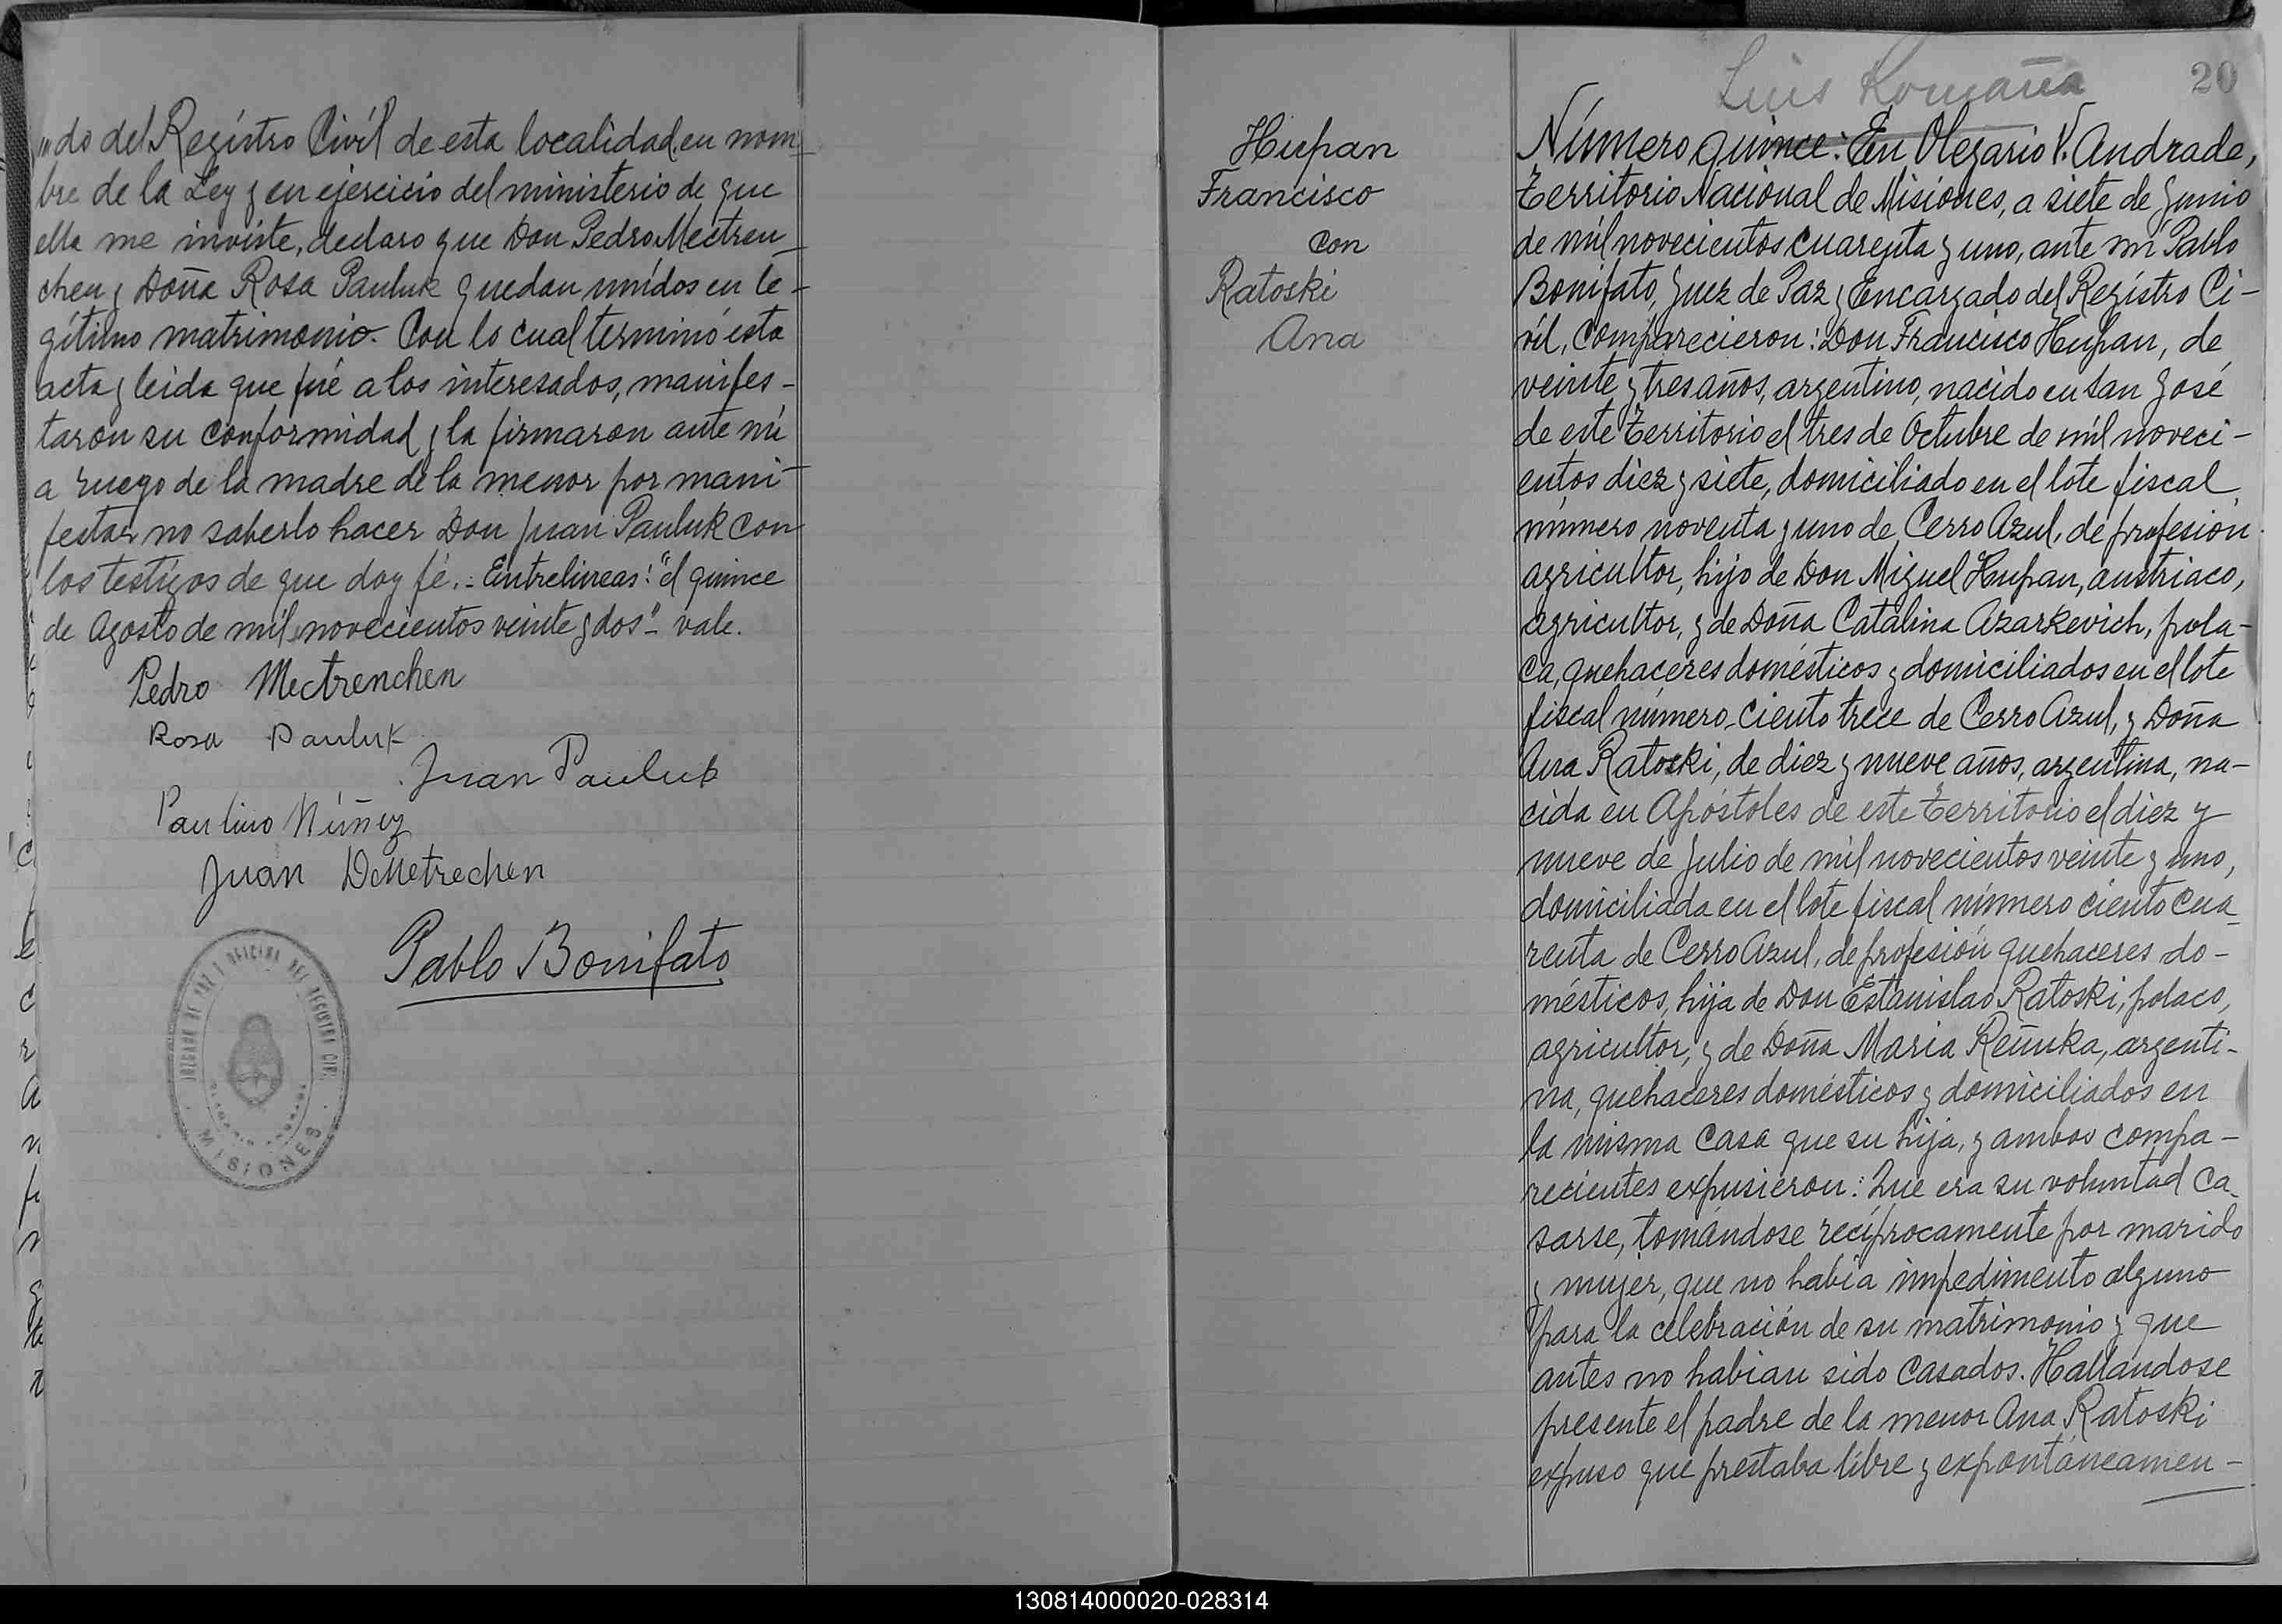 do del Registro Civíl de esta localidad, en nom-
bre de la Ley y en ejercicio del ministerio de que
ella me inviste, declaro que Don Pedro Mectren-
chen y Doña Rosa Pauluk quedan unídos en le-
gítimo matrimonio. Con lo cual terminó esta
acta y leida que fué a los interesados, manifes-
taron su conformidad y la firmaron ante mí
a ruego de la madre de la menor por mani-
festar no saberlo hacer Don Juan Pauluk con
los testigos de que doy fé.- Entrelineas: "el quince
de Agosto de mil novecientos veinte y dos" - vale.
Pedro Mectrenchen
Rosa Pauluk
Juan Pauluk
Paulino Núñez
Juan DMetrechen
Pablo Bonifato
JUZGADO DE PAZ Y OFICINA DEL REGISTRO CIVIL
MISIONES
Hupan
Francisco
con
Ratoski
Ana
Luis Romaña
20
Número quince: En Olegario V. Andrade,
Territorio Nacional de Misiones, a siete de Junio
de mil novecientos cuarenta y uno, ante mí Pablo
Bonifato, Juez de Paz y Encargado del Registro Ci-
vil, comparecieron: Don Francisco Hupan, de
veinte y tres años, argentino, nacido en San José
de este Territorio el tres de Octubre de mil noveci-
entos diez y siete, domiciliado en el lote fiscal
número noventa y uno de Cerro Azul, de profesión
agricultor, hijo de Don Miguel Hupan, austriaco,
agricultor, y de Doña Catalina Azarkevich, pola-
ca, quehaceres domésticos y domiciliados en el lote
fiscal número ciento trece de Cerro Azul, y Doña
Ana Ratoski, de diez y nueve años, argentina, na-
cida en Apóstoles de este Territorio el diez y
nueve de Julio de mil novecientos veinte y uno,
domiciliada en el lote fiscal número ciento cua-
renta de Cerro Azul, de profesión quehaceres do-
mésticos, hija de Don Estanislao Ratoski, polaco,
agricultor, y de Doña Maria Reúnka, argenti-
na, quehaceres domésticos y domiciliados en
la misma casa que su hija, y ambos compa-
recientes expusieron: Que era su voluntad ca-
sarse, tomándose recíprocamente por marido
y mujer, que no había impedimento alguno
para la celebración de su matrimonio y que
antes no habian sido casados. Hallándose
presente el padre de la menor Ana Ratoski
expuso que prestaba libre y expontáneamen-
130814000020-028314